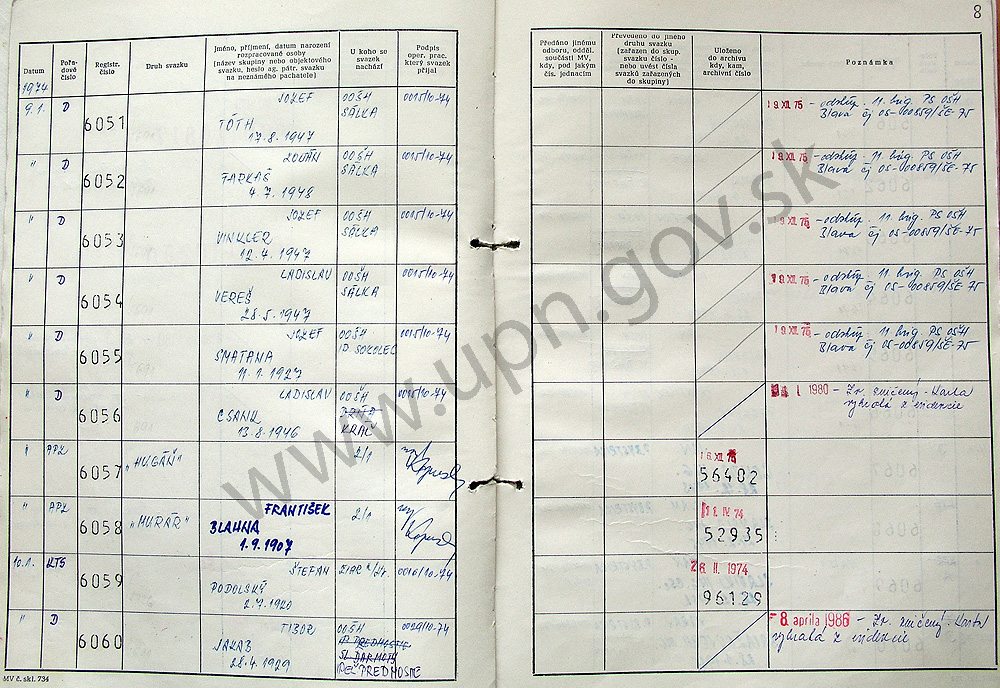 8
Datum
Pořa-
dové
číslo
Registr.
číslo
Druh svazku
Jméno, příjmení, datum narození
rozpracované osoby
(název skupiny nebo objektového
svazku, heslo ag. pátr. svazku
na neznámého pachatele)
U koho se
svazek
nachází
Podpis
oper. prac.
který svazek
přijal
Předáno jinému
odboru, odděl.
součásti MV,
kdy, pod jakým
čís. jednacím
Převedeno do jiného
druhu svazku
(zařazen do skup.
svazku číslo -
nebo uvést čísla
svazků zařazených
do skupiny)
Uloženo
do archivu
kdy, kam,
archivní číslo
Poznámka
1974
9.1. D 6051 JOZEF
TÓTH
17.8.1947
OOŠH
SÁLKA
0015/10-74
19.XII.75 - odstúp. 11. brig. PS OŠH
Blava čj 05-00859/ŠE-75
" D 6052 ZOLTÁN
FARKAŠ
4.7.1948
OOŠH
SÁLKA
0015/10-74
19.XII.75 - odstúp. 11. brig. PS OŠH
Blava čj 05-00859/ŠE-75
" D 6053 JOZEF
VINKLER
12.4.1947
OOŠH
SÁLKA
0015/10-74
19.XII.75 - odstúp. 11. brig. PS OŠH
Blava čj 05-00859/ŠE-75
" D 6054 LADISLAV
VEREŠ
28.5.1947
OOŠH
SÁLKA
0015/10-74
19.XII.75 - odstúp. 11. brig. PS OŠH
Blava čj 05-00859/ŠE-75
" D 6055 JOZEF
SMATANA
11.1.1927
OOŠH
SOKOLEC
0015/10-74
19.XII.75 - odstúp. 11. brig. PS OŠH
Blava čj 05-00859/ŠE-75
" D 6056 LADISLAV
13.8.1946
OOŠH
KRÁČ
0015/10-74
I 1980 - Zv. zničený - karta
vybratá z evidencie
" 6057
2/1
XII 75
56402
" 6058 „MURÁR"
FRANTIŠEK
BLAHNA
1.9.1907
2/1
IV 74
52935
10.1. KTS 6059 ŠTEFAN
PODOLSKÝ
2.7.1920
0016/10-74
26. II. 1974
96129
" D 6060 TIBOR
JAKAB
28.4.1929
OOŠH
PREDMOSTIE
0029/10-74
- 8. apríla 1986 - Zv. zničený - karta
vybratá z evidencie
MV č. skl. 734
www.upn.gov.sk